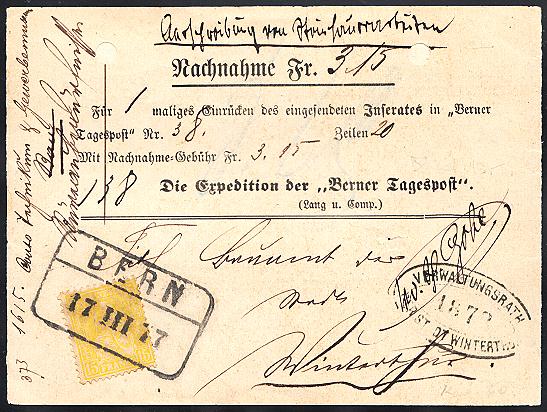 Ausschreibung von Steinhauerarbeiten
Nachnahme Fr. 3.15
Für 1 maliges Einrücken des eingesendeten Inserates in „Berner
Tagespost" Nr. 38. Zeilen 20
Mit Nachnahme-Gebühr Fr. 3.15
138 Die Expedition der „Berner Tagespost".
(Lang u. Comp.)
Bauamt der
Stadt
Winterthur
BERN
17 III 77
15
VERWALTUNGSRATH
187
ST. D. WINTERTHUR
373 1615.